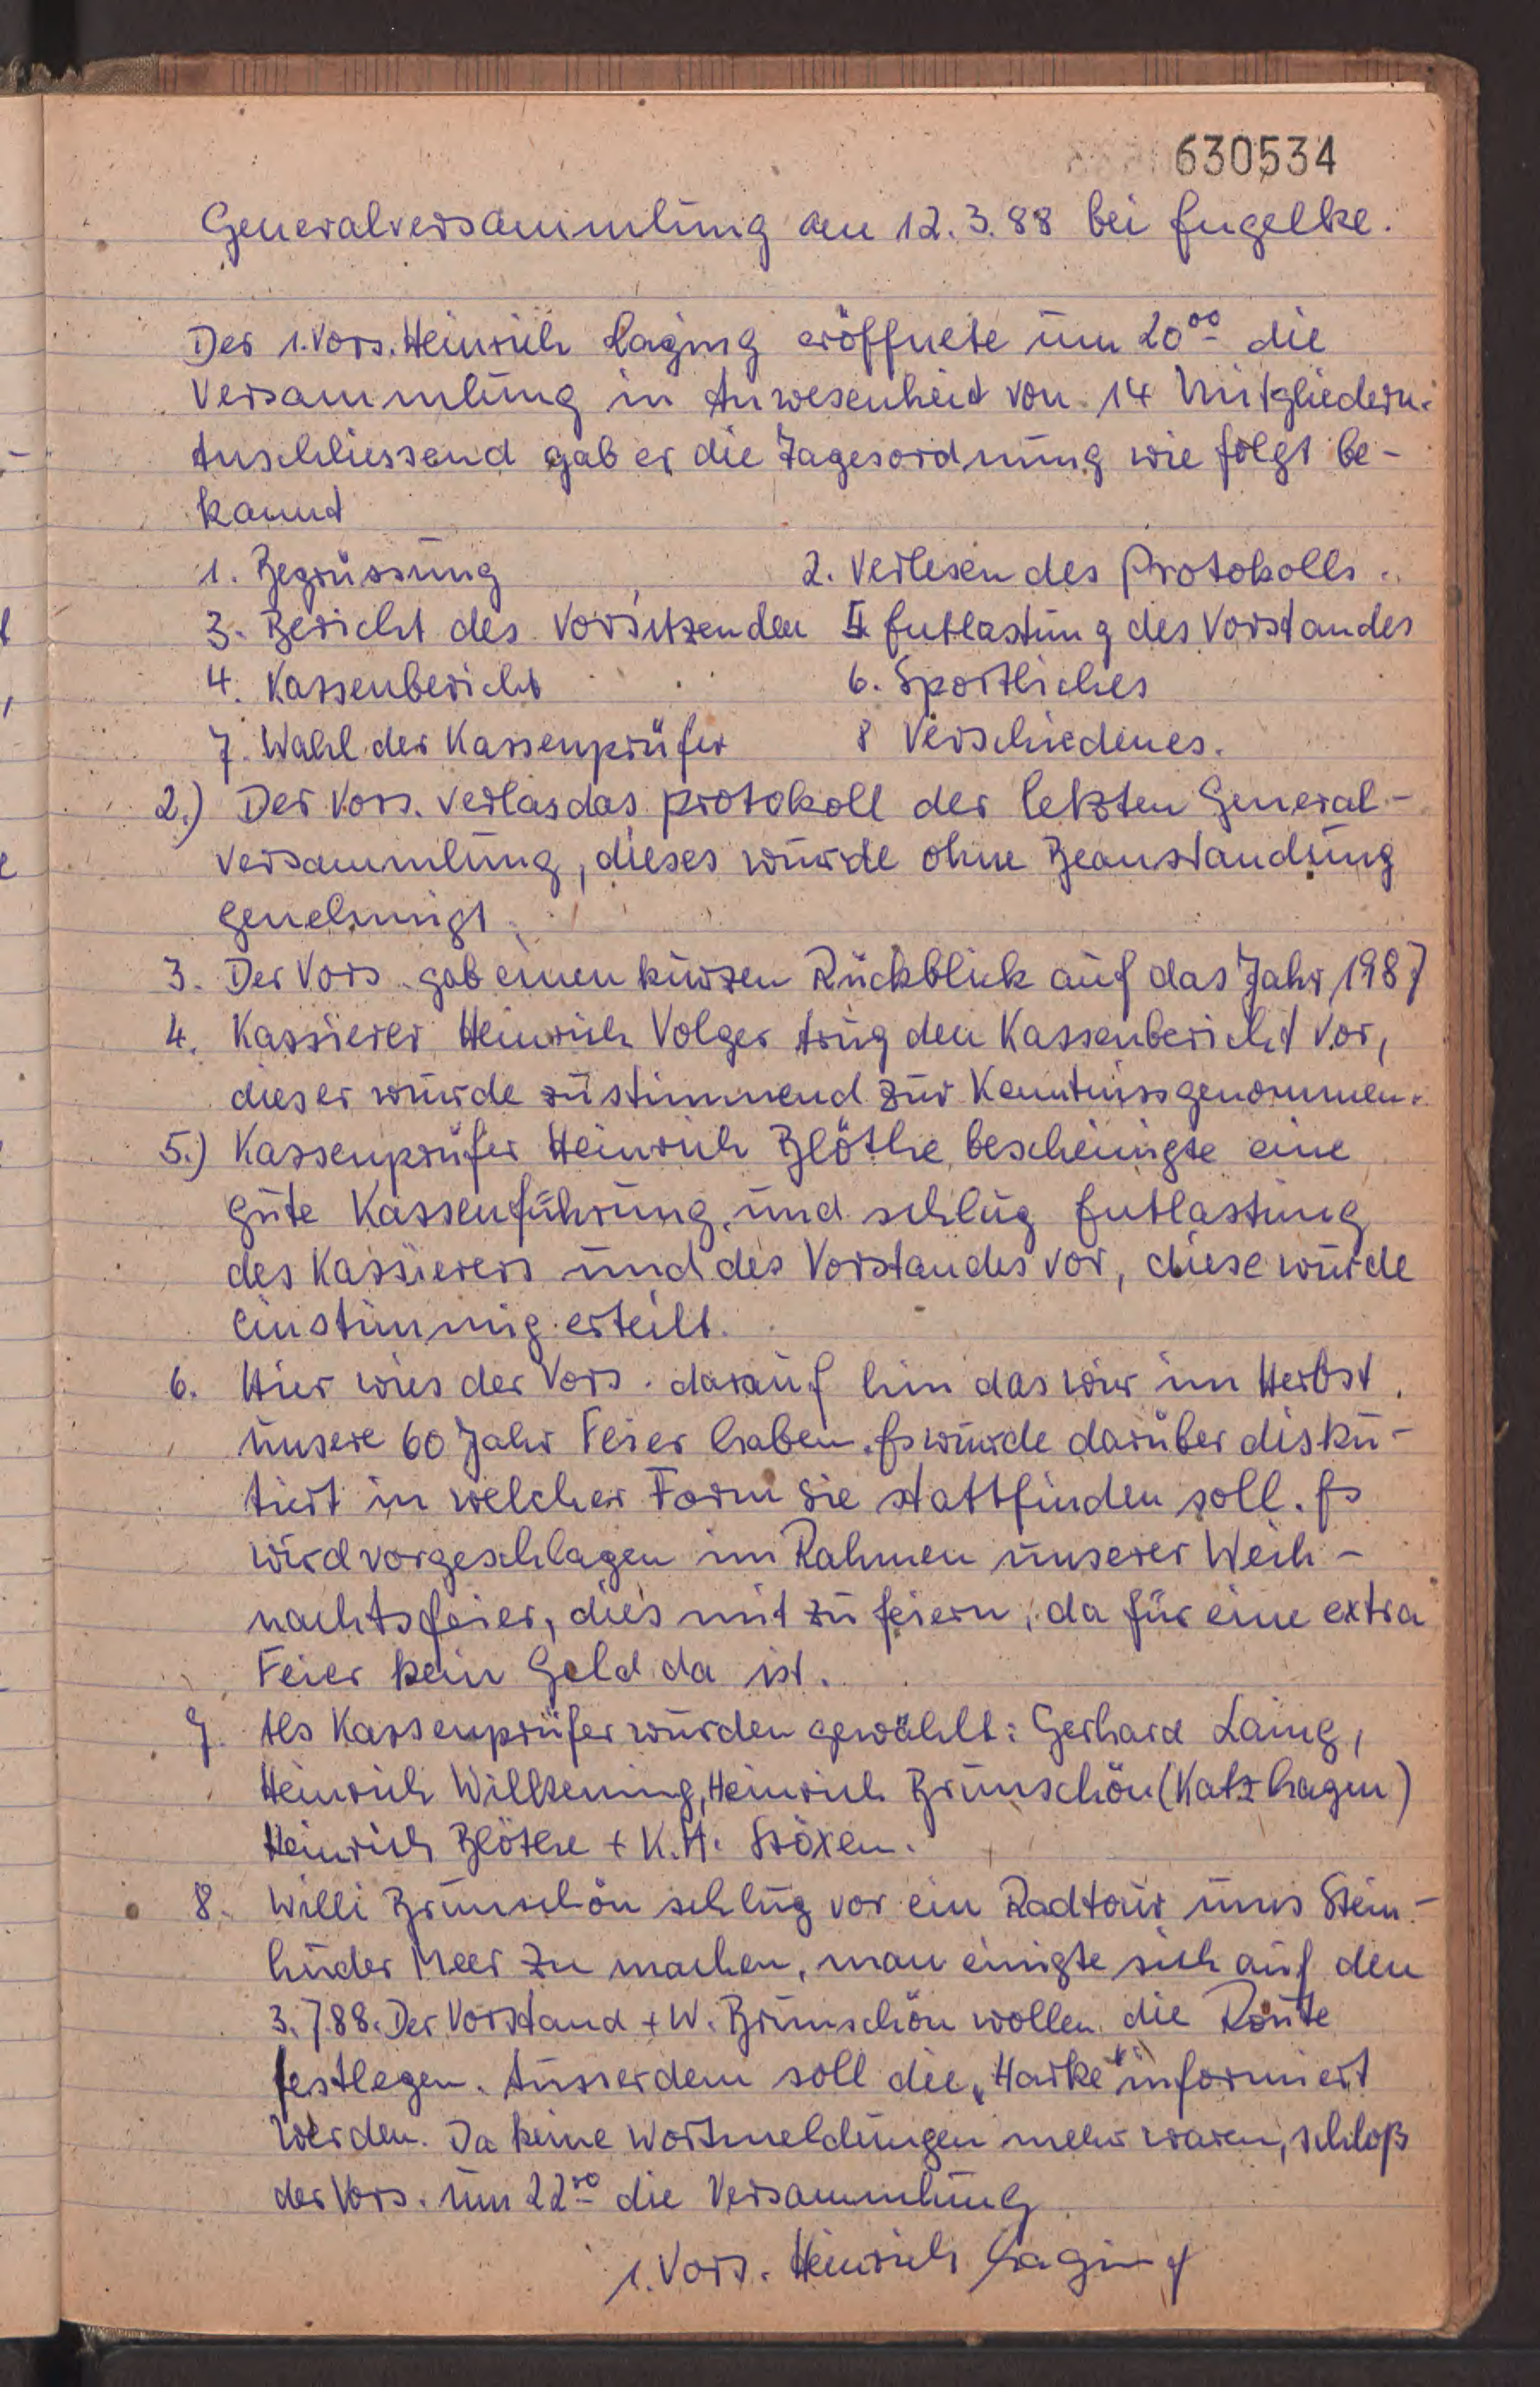 630534
Generalversammlung am 12.3.88 bei Engelke.
Der 1.Vors. Heinrich Laging eröffnete um 20⁰⁰ die
Versammlung in Anwesenheit von 14 Mitgliedern.
Anschliessend gab er die Tagesordnung wie folgt be-
kannt
1. Begrüssung 2. Verlesen des Protokolls.
3. Bericht des Vorsitzenden 5 Entlastung des Vorstandes
4. Kassenbericht 6. Sportliches
7. Wahl der Kassenprüfer 8 Verschiedenes.
2.) Der Vors. verlas das Protokoll der letzten General-
versammlung, dieses wurde ohne Beanstandung
genehmigt.
3. Der Vors. gab einen kurzen Rückblick auf das Jahr 1987
4. Kassierer Heinrich Volger trug den Kassenbericht vor,
dieser wurde zustimmend zur Kenntniss genommen.
5.) Kassenprüfer Heinrich Blöthe bescheinigte eine
gute Kassenführung, und schlug Entlastung
des Kassierers und des Vorstandes vor, diese wurde
einstimmig erteilt.
6. Hier wies der Vors. darauf hin das wir im Herbst
unsere 60 Jahr Feier haben. Es wurde darüber disku-
tiert in welcher Form sie stattfinden soll. Es
wird vorgeschlagen im Rahmen unserer Weih-
nachtsfeier, dies mit zu feiern, da für eine extra
Feier kein Geld da ist.
7. Als Kassenprüfer wurden gewählt: Gerhard Laing,
Heinrich Wilkening, Heinrich Brunschön (Katzhagen)
Heinrich Blöthe + K.H. Stöxen.
8. Willi Brunschön schlug vor ein Radtour ums Stein-
huder Meer zu machen, man einigte sich auf den
3.7.88. Der Vorstand + W. Brunschön wollen die Route
festlegen. Ausserdem soll die „Harke" informiert
werden. Da keine Wortmeldungen mehr waren, schloß
der Vors. um 22⁰⁰ die Versammlung
1. Vors. Heinrich Laging